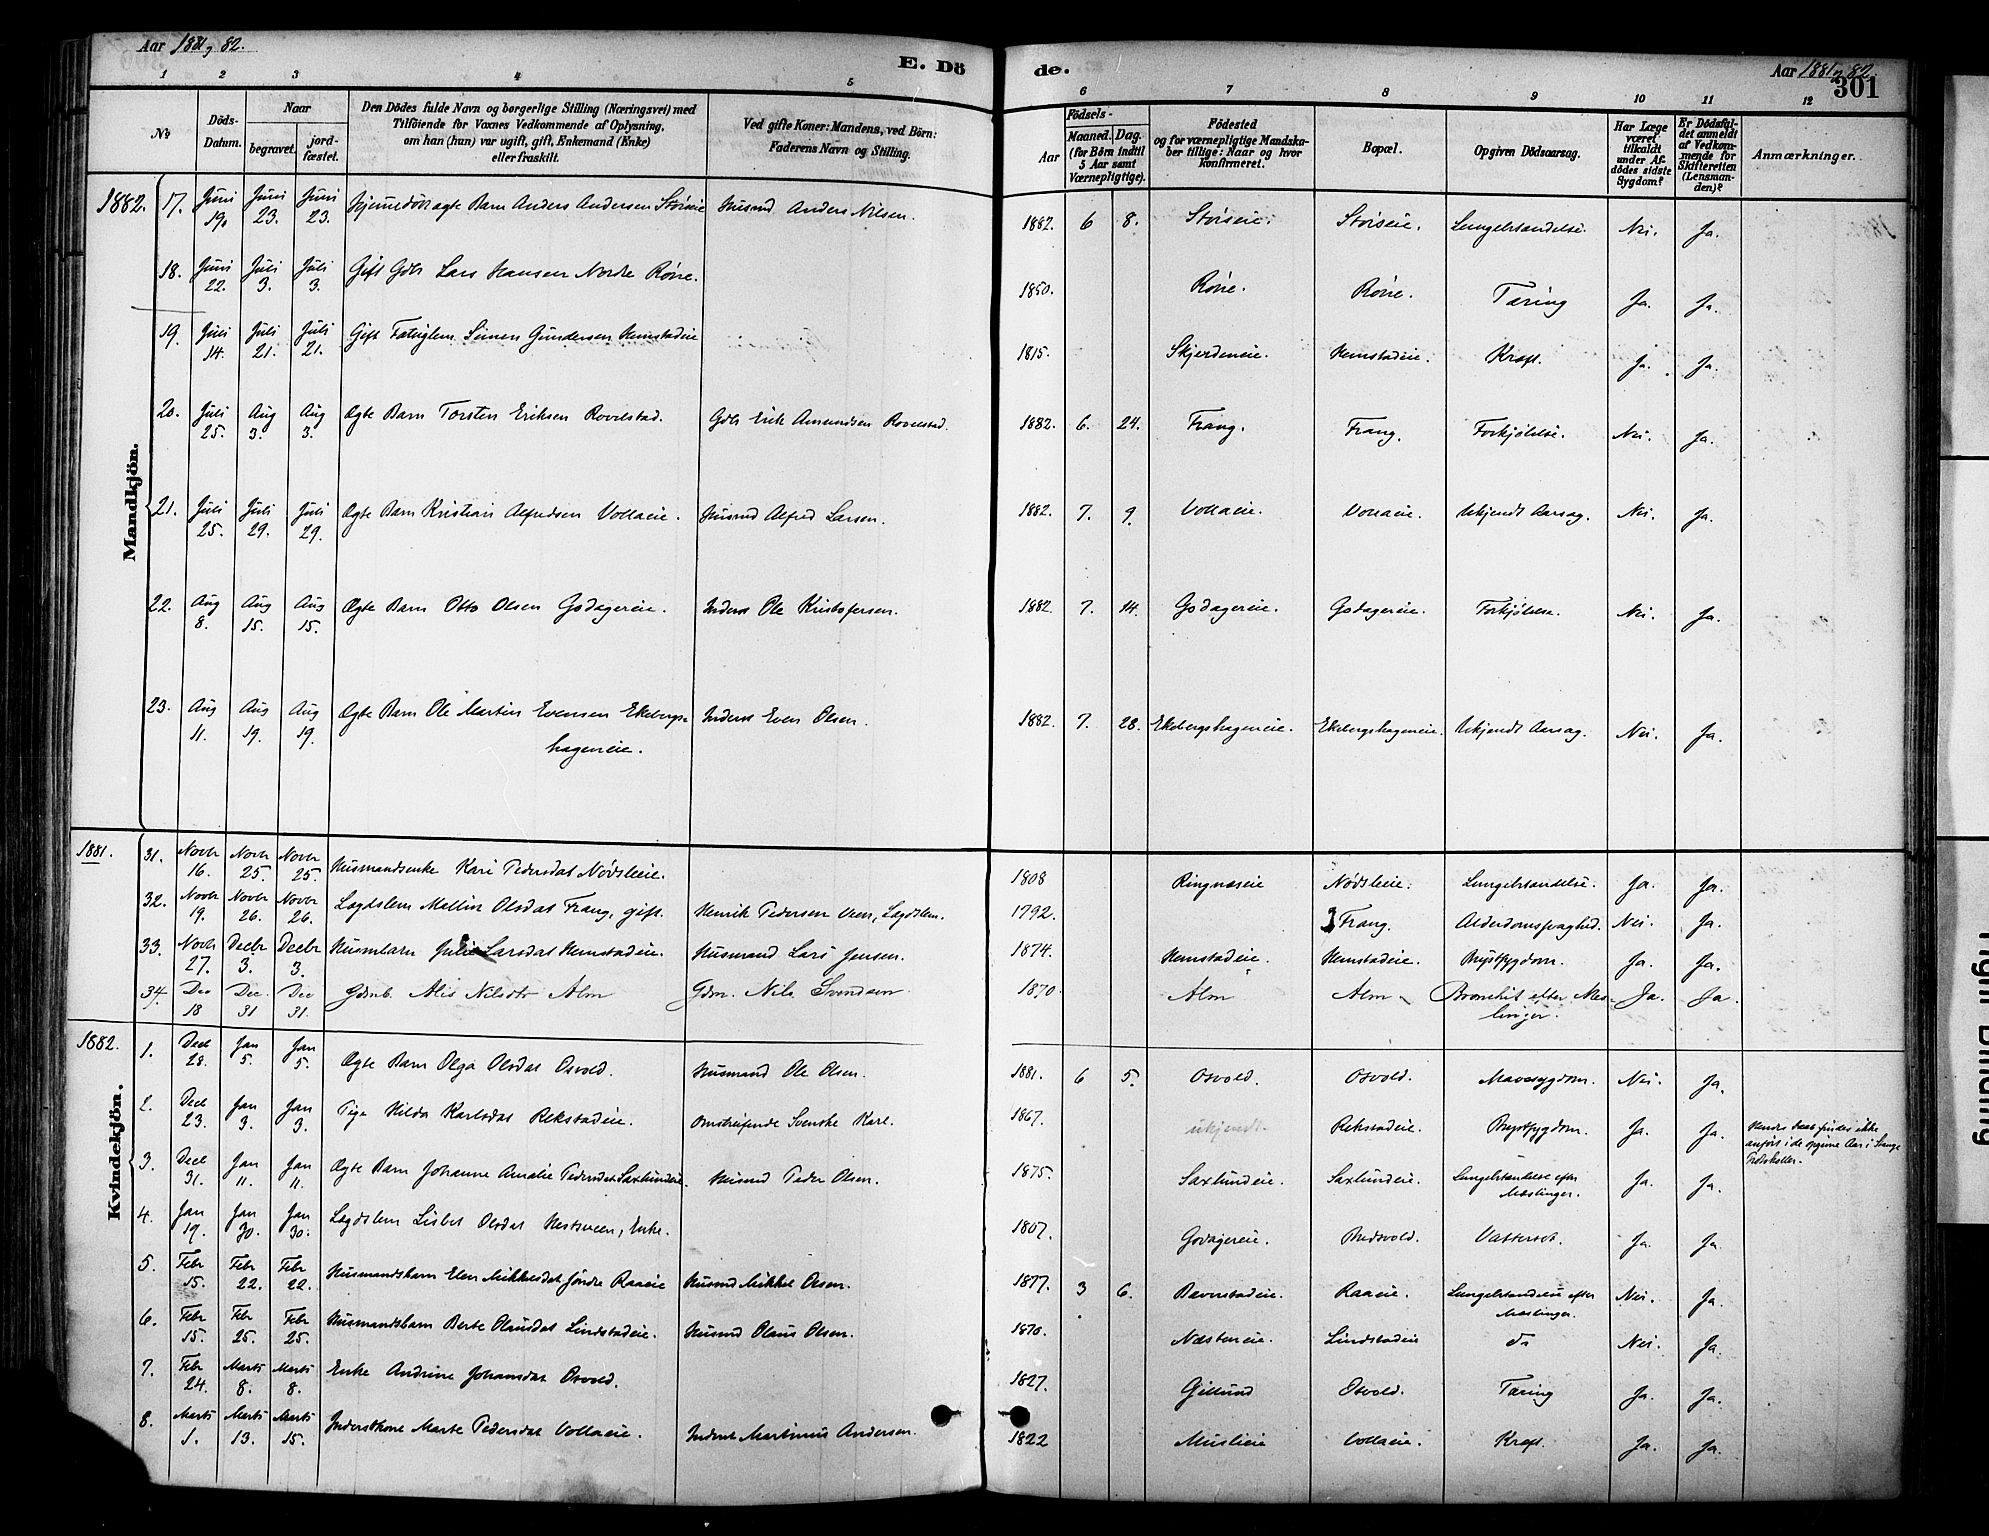 Aar 1881, 82.
E. Dö
de.
Aar 1881, 82.
301
1 2 3 4 5 6 7 8 9 10 11 12
No
Döds-Datum.
Naar
begravet.
jord-fæstet.
Den Dödes fulde Navn og borgerlige Stilling (Næringsvei) med
Tilföiende for Voxnes Vedkommende af Oplysning,
om han (hun) var ugift, gift, Enkemand (Enke)
eller fraskilt.
Ved gifte Koner: Mandens, ved Börn:
Faderens Navn og Stilling.
Födsels-
Aar
Maaned. Dag.
(for Börn indtil
5 Aar samt
Værnepligtige).
Födested
og for værnepligtige Mandska-
ber tillige: Naar og hvor
konfirmeret.
Bopæl.
Opgiven Dödsaarsag.
Har Læge
været
tilkaldt
under Af-
dödes sidste
Sygdom?
Er Dödsfal-
det anmeldt
af Vedkom-
mende for
Skifteretten
(Lensman-
den)?
Anmærkninger.
Mandkjön.
1882. 17. Juni 19. Juni 23. Juni 23. Hjemedöbt ægte Barn Anders Andersen Störseie Husmd Anders Nilsen. 1882. 6 8. Störseie. Störseie. Lungebetændelse. Nei. Ja.
18. Juni 22. Juli 3. Juli 3. Gift Gdbr Lars Hansen Nordre Rörre. 1850. Rörre. Rörre. Tæring Ja. Ja.
19. Juli 14. Juli 21. Juli 21. Gift Fattiglem Simen Gundersen Hemstadeie 1815. Skjerdeneie. Hemstadeie. Kræft. Ja. Ja.
20. Juli 25. Aug 3. Aug 3. Ægte Barn Torsten Eriksen Rovelstad. Gdbr Erik Amundsen Rovelstad. 1882. 6. 24. Frang. Frang. Forkjölelse. Nei. Ja.
21. Juli 25. Juli 29. Juli 29. Ægte Barn Kristian Alfredsen Vollaeie. Husmd Alfred Larsen. 1882. 7. 9. Vollaeie. Vollaeie. Ukjendt Aarsag. Nei. Ja.
22. Aug 8. Aug 15. Aug 15. Ægte Barn Otto Olsen Godagereie. Inderst Ole Kristofersen. 1882. 7. 14. Godagereie. Godagereie. Forkjölelse. Nei. Ja.
23. Aug 11. Aug 19. Aug 19. Ægte Barn Ole Martin Evensen Ekebergs-
hageneie. Inderst Even Olsen. 1882. 7. 28. Ekebergshageneie. Ekebergshageneie. Ukjendt Aarsag. Nei. Ja.
Kvindekjön.
1881. 31. Novbr 16. Novbr 25. Novbr 25. Husmandsenke Kari Pedersdat Nödsleeie. 1808 Ringnæseie Nödsleeie. Lungebetændelse. Ja. Ja.
32. Novbr 19. Novbr 26. Novbr 26. Lægdslem Mallin Olsdat Frang, gift. Henrik Pedersen Veen, Lægdslem. 1792. Frang. Alderdomssvaghed. Nei. Ja.
33. Novbr 27. Decbr 3. Decbr 3. Husmbarn Julie Larsdat Hemstadeie. Husmand Lars Jensen. 1874. Hemstadeie. Hemstadeie. Brystsygdom. Ja. Ja.
34. Dec 18 Dec. 31 Dec 31. Gdmb. Alis Nilsdtr Alm Gdm. Nils Svendsen 1870. Alm Alm Bronchit efter Mes-
linger. Ja. Ja
1882. 1. Decb 28. Jan 5. Jan 5. Ægte Barn Olga Olsdat Osvold. Husmand Ole Olsen. 1881. 6 5. Osvold. Osvold. Mavesygdom. Nei. Ja.
2. Decb 23. Jan 3. Jan 3. Pige Hilda Karlsdat Rekstadeie. Omstreifende Svenske Karl. 1867. ukjendt. Rekstadeie. Brystsygdom. Ja. Ja. Hendes Daab findes ikke
anfört i de opgivne Aar i Stange
Protokoller.
3. Decb 31. Jan 11. Jan 11. Ægte Barn Johanne Amalie Pedersdat Saxlundeie. Husmd Peder Olsen. 1875. Saxlundeie. Saxlundeie. Lungebetændelse efter
Mæslinger. Ja. Ja.
4. Jan 19. Jan 30. Jan 30. Lægdslem Lisbet Olsdat Hestsveen, Enke. 1807. Godagereie. Bredsvold. Vattersot. Ja. Ja.
5. Febr 15. Febr 22. Febr 22. Husmandsbarn Elen Mikkelsdat Söndre Raaeie Husmd Mikkel Olsen. 1877. 3 6. Bævenstadeie. Raaeie. Lungebetændelse efter
Mæslinger. Nei. Ja.
6. Febr 15. Febr 25. Febr 25. Husmandsbarn Berte Olausdat Lindstadeie. Husmd Olaus Olsen. 1876. Næstereie. Lindstadeie do Nei. Ja.
7. Febr 24. Marts 8. Marts 8. Enke Andrine Johansdat Osvold. 1827. Gillund Osvold. Tæring Ja. Ja.
8. Marts 1. Marts 13. Marts 15. Inderstkone Marte Pedersdat Vollaeie. Inderst Martinus Andersen. 1822 Muslieie Vollaeie. Kræft. Ja. Ja.